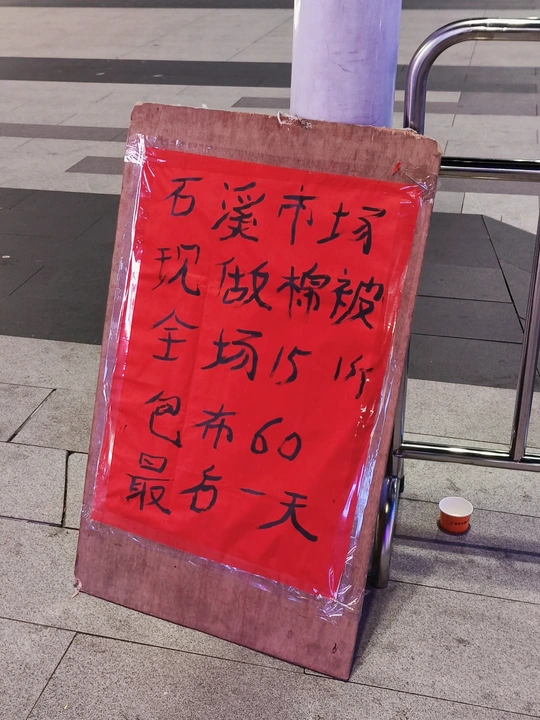 石溪市场
现做棉被
全场15 1斤
包布60
最后一天